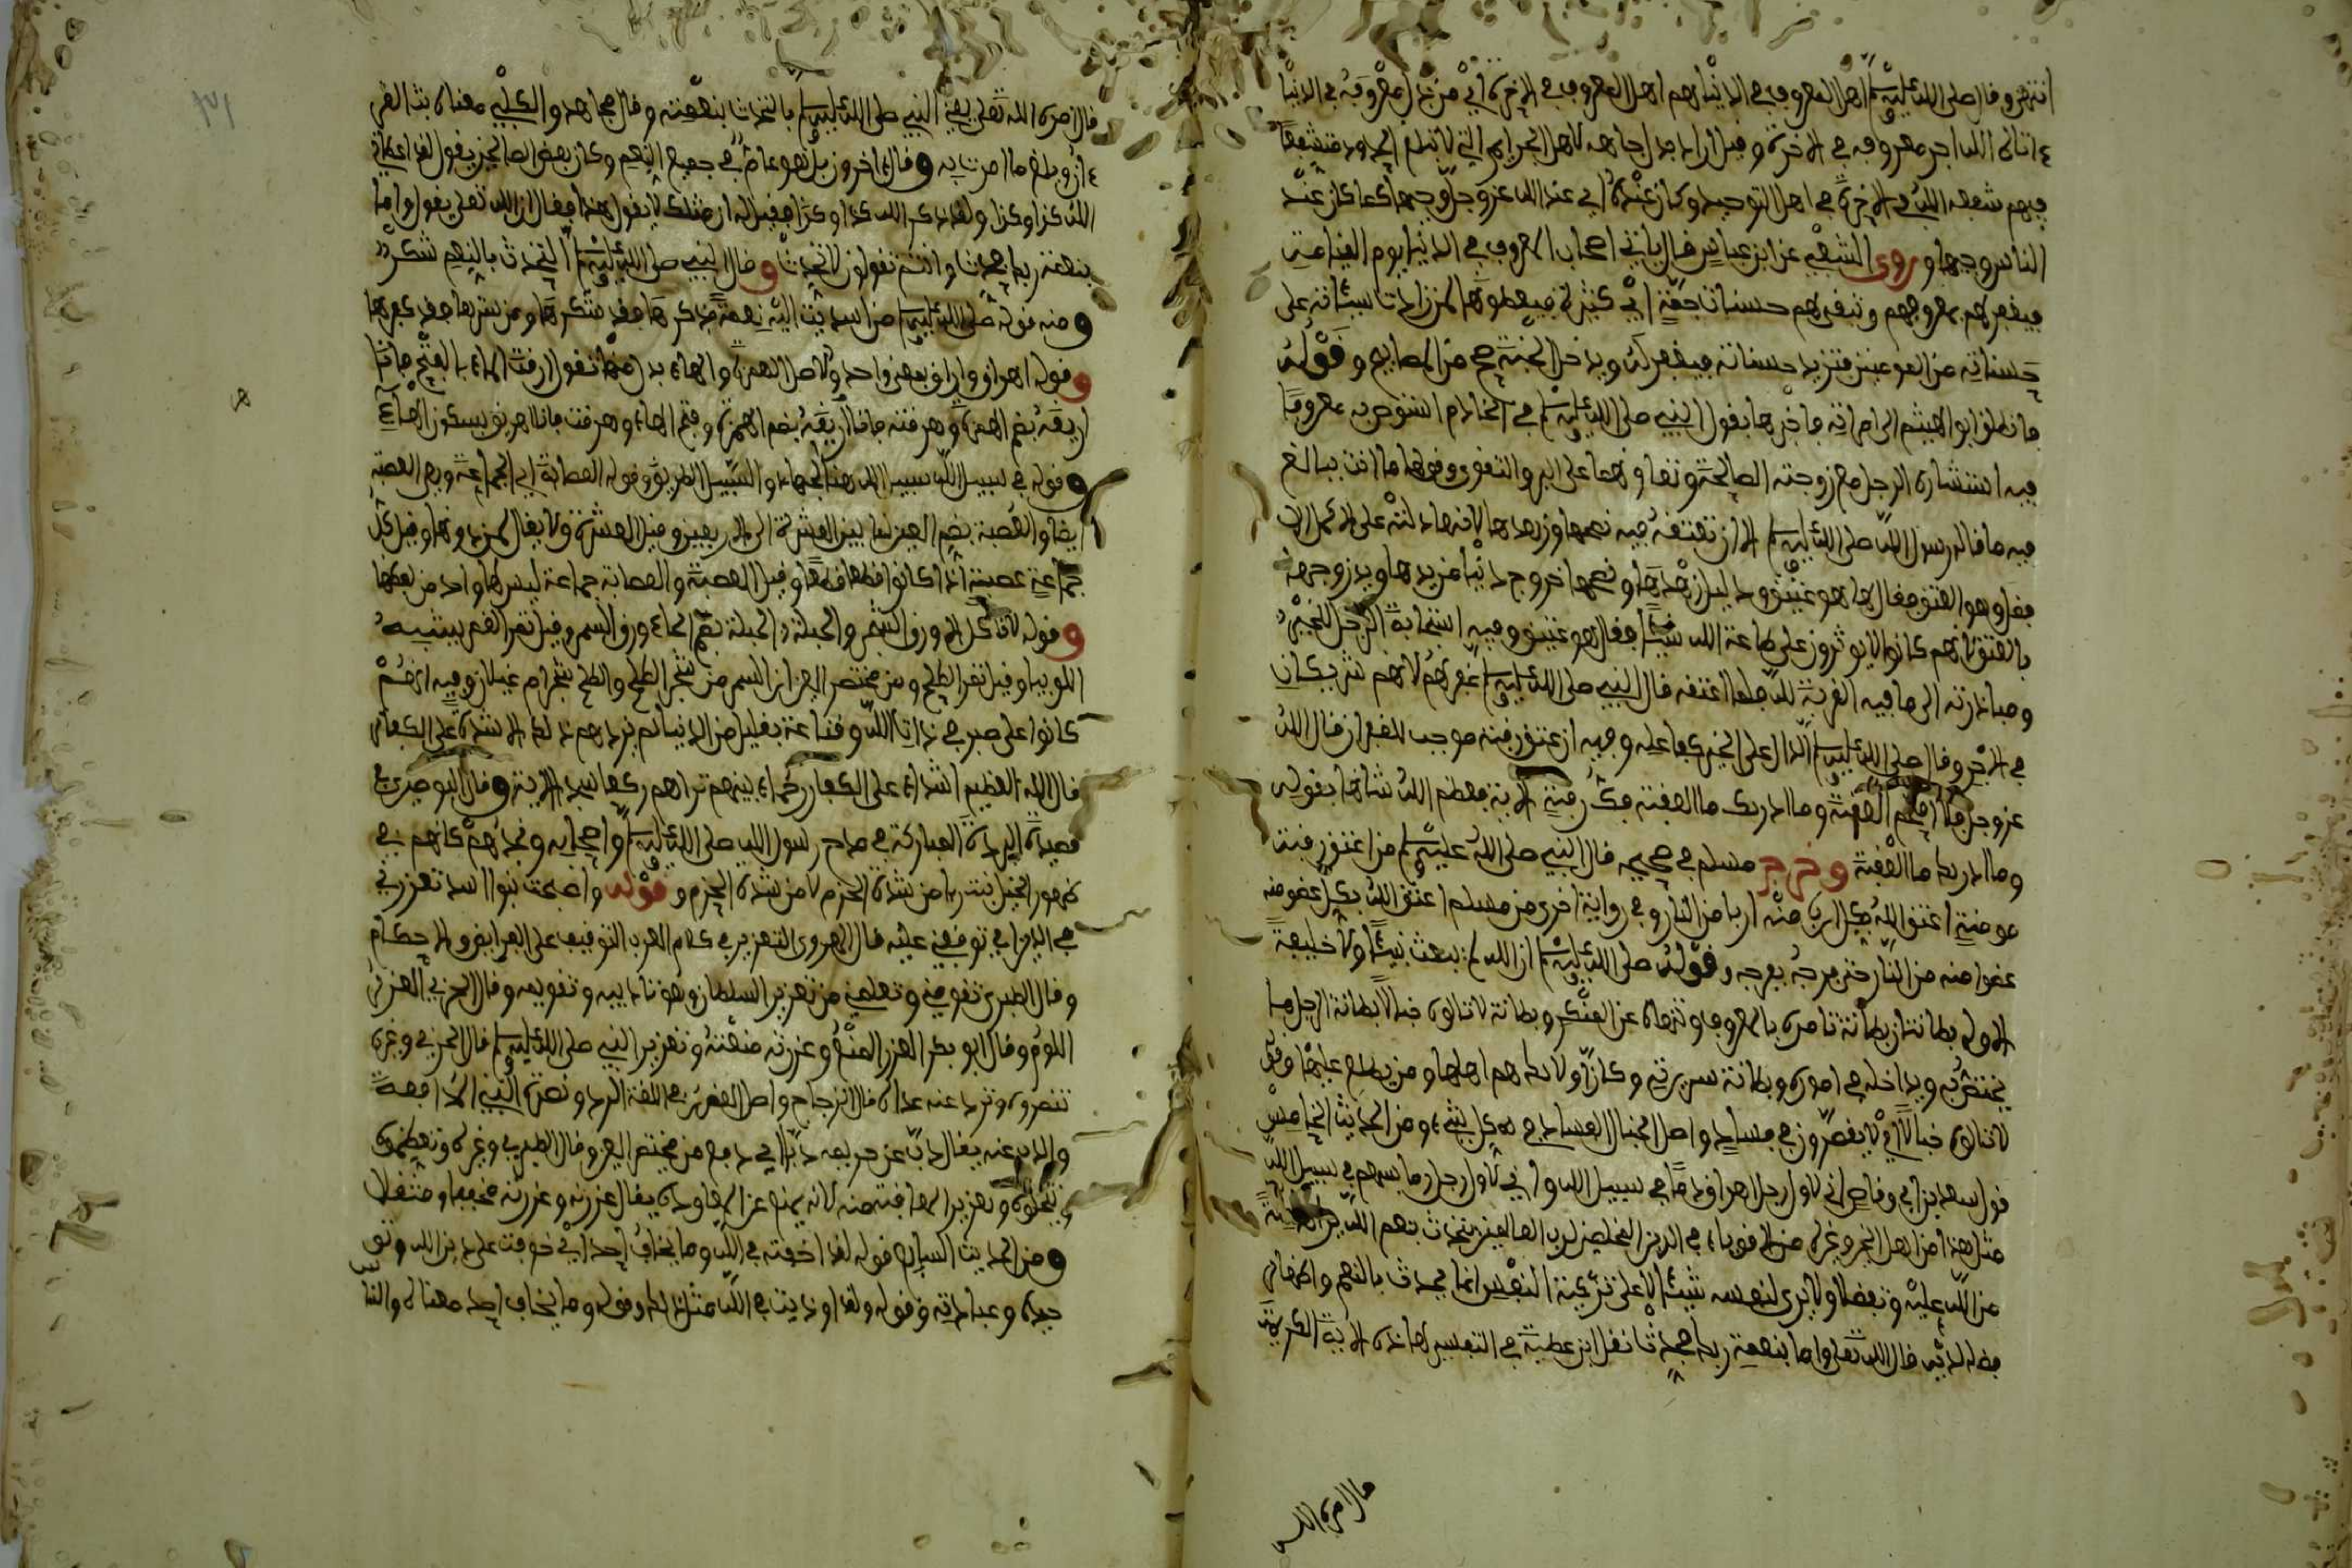 انتهى وقال صلى الله عليه وسلم اهل المعروف في الدنيا هم اهل المعروف في الاخرة اي من بذل معروفه في الدنيا
ءاتاه الله اجر معروفه في الاخرة وقيل اراد من بذل جاهه لاهل الجرايم التي لا تبلغ الحدود فيشفع
فيهم شفعه الله في الاخرة في اهل التوحيد وكان عنده اي عند الله عز وجل وجيها كما كان عند
الناس وجيها وروى الشعبي عن ابن عباس قال ياتي اصحاب المعروف في الدنيا يوم القيامة
فيغفر لهم بمعروفهم وتبقى لهم حسناتهم جمة اي كثيرة فيعطونها لمن زادت سيئاته على
حسناته من المومنين فتزيد حسناته فيغفر له ويدخل الجنة صح من المصابيح وقوله
فانطلق ابو الهيثم الى امراته فاخبرها بقول النبي صلى الله عليه وسلم في الخادم استوص به معروفا
فيه استشارة الرجل مع زوجته الصالحة وتعاونهما على البر والتقوى وقولها ما انت ببالغ
فيه ما قال رسول الله صلى الله عليه وسلم الا ان تعتقه فيه فهمها وزهدها لانها دلته على الاكمل
بفعل وهو العتق فقال لها هو عتيق ودليل زهدها وفهمها خروج دنيا من يدها ويد زوجها
بالعتق لانهم كانوا لا يوثرون على طاعة الله شيئا فقال هو عتيق وفيه استجابة الرجل للخير
ومبادرته الى ما فيه القربة لله فلما اعتقه قال النبي صلى الله عليه وسلم لانهم شريكان
في الاجر وقال صلى الله عليه وسلم الدال على الخير كفاعله وفيه ان عتق رقبة موجب قال الله
عز وجل فلا اقتحم العقبة وما ادريك ما العقبة فك رقبة الاية فعظم الله شانها بقوله
وما ادريك ما العقبة وخرج مسلم في صحيحه قال النبي صلى الله عليه وسلم من اعتق رقبة
مومنة اعتق الله بكل ارب منه اربا من النار وفي رواية اخرى من مسلم اعتق الله بكل عضو منه
عضوا منه من النار حتى فرجه بفرجه وقوله صلى الله عليه وسلم ان الله لم يبعث نبيئا ولا خليفة
الا وله بطانتان بطانة تامره بالمعروف وتنهاه عن المنكر وبطانة لا تالوه خبالا بطانة الرجل من
يختص به ويداخله في اموره وبطانة سريرته
لا تالوه خبالا اي لا يقصرون في فساده واصل الخبال الفساد في كل شيء ومن الحديث الخامس
قول سعد بن ابي وقاص اني لاول رجل اهراق دما في سبيل الله واني لاول رجل رما بسهم في سبيل الله
مثل هذا من اهل الخير وغيره من الاقوياء في الدين المخلصين لرب العالمين يتحدث بنعم الله
من الله عليه وتفضلا ولا يرى لنفسه شيئا لا على تزكية النفس انما يحدث بالنعم واظهار
فضله لديه قال الله تعلى واما بنعمة ربك فحدث نقل ابن عطية في التفسير لهاذه الاية الكريمة
قال امره الله
قال امره الله تعلى يعني النبي صلى الله عليه وسلم بالتحدث بنعمته وقال مجاهد والكلبي معناه بث القر
ءان وبلغ ما امرت به وقال ءاخرون بل هو عام في جميع النعم وكان بعض الصالحين يقول لقد اعطاني
الله كذا وكذا ولقد ذكر الله كذا وكذا فقيل له ان مثلك لا يقول هذا فقال ان الله تعلى يقول واما
بنعمة ربك فحدث وانتم تقولون لا تحدث وقال النبي صلى الله عليه وسلم التحدث بالنعم شكر
ومنه قوله صلى الله عليه وسلم من اسديت اليه نعمة فذكرها فقد شكرها ومن سترها فقد كفرها
وقوله اهراق واراق بمعنى واحد والاصل الهمزة والهاء بدل منها تقول ارقت الماء بالفتح فانا
اريقه بضم الهمزة وهرقته فانا اهريقه بضم الهمزة وفتح الهاء واهرقت فانا اهريق بسكون الهاء
وقوله في سبيل الله سبيل الله هنا الجهاد والسبيل الطريق وقوله العصابة اي الجماعة وهي العصبة
ايضا والعصبة بضم العين لما بين العشرة الى الاربعين وقيل العشرة ولا يقال لمن دونها وقيل كل
جماعة عصبة اذا كانوا قطعا قطعا وقيل العصبة والعصابة جماعة ليس لها واحد من لفظها
وقوله لا ناكل الا ورق الشجر والحبلة الحبلة بضم الحاء ورق السمر وقيل ثمر السمر يشبه
اللوبيا وقيل ثمر الطلح ومن مختصر العين ان السمر من شجر الطلح والطلح شجر ام غيلان وفيه انهم
كانوا على صبر في ذات الله وقناعة بقليل من الدنيا لم يزدهم ذلك الا شدة على الكفار
قال الله العظيم اشداء على الكفار رحماء بينهم تراهم ركعا سجدا الاية وقال البوصيري في
قصيدة البردة المباركة في مدح رسول الله صلى الله عليه وسلم واصحابه ونجدهم كانهم في
ظهور الخيل نبت ربا من شدة الحزم لا من شدة الحزم وقوله واصبحت بنوا اسد تعزرني
في الدين اي توقفني عليه قال الهروي التعزير في كلام العرب التوقيف على الفرايض والاحكام
وقال الطبري تقومني وتعلمني من تعزير السلطان وهو تاديبه وتقويمه وقال الحربي العزر
اللوم وقال ابو بكر العزر المنع وعزرته منعته وتعزير النبي صلى الله عليه وسلم قال الحربي وغيره
تنصروه وترد عنه عداه قال الزجاج واصل التعزير في اللغة الرد ونصرة النبي المدافعة
والذب عنه يقال ذب عن حريمه ذبا اي دفع من مختصر العين وقال الطبري وغيره وتعظموه
وتجلوه وتعزير المعاقبة منه لانه يمنع عن المعاودة يقال عزرته وعزرته مخففا ومثقلا
ومن الحديث السادس قوله لقد اخفت في الله وما يخاف احد اي خوفت على دين الله وتو
حيده وعبادته وقوله ولقد اوذيت في الله مثل ذلك وقوله وما يخاف احد معناه والنا